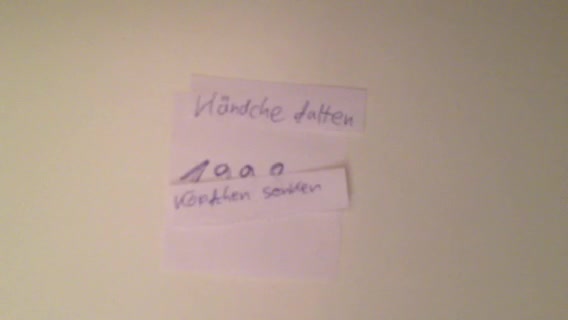 Händche falten
Köpfchen senken